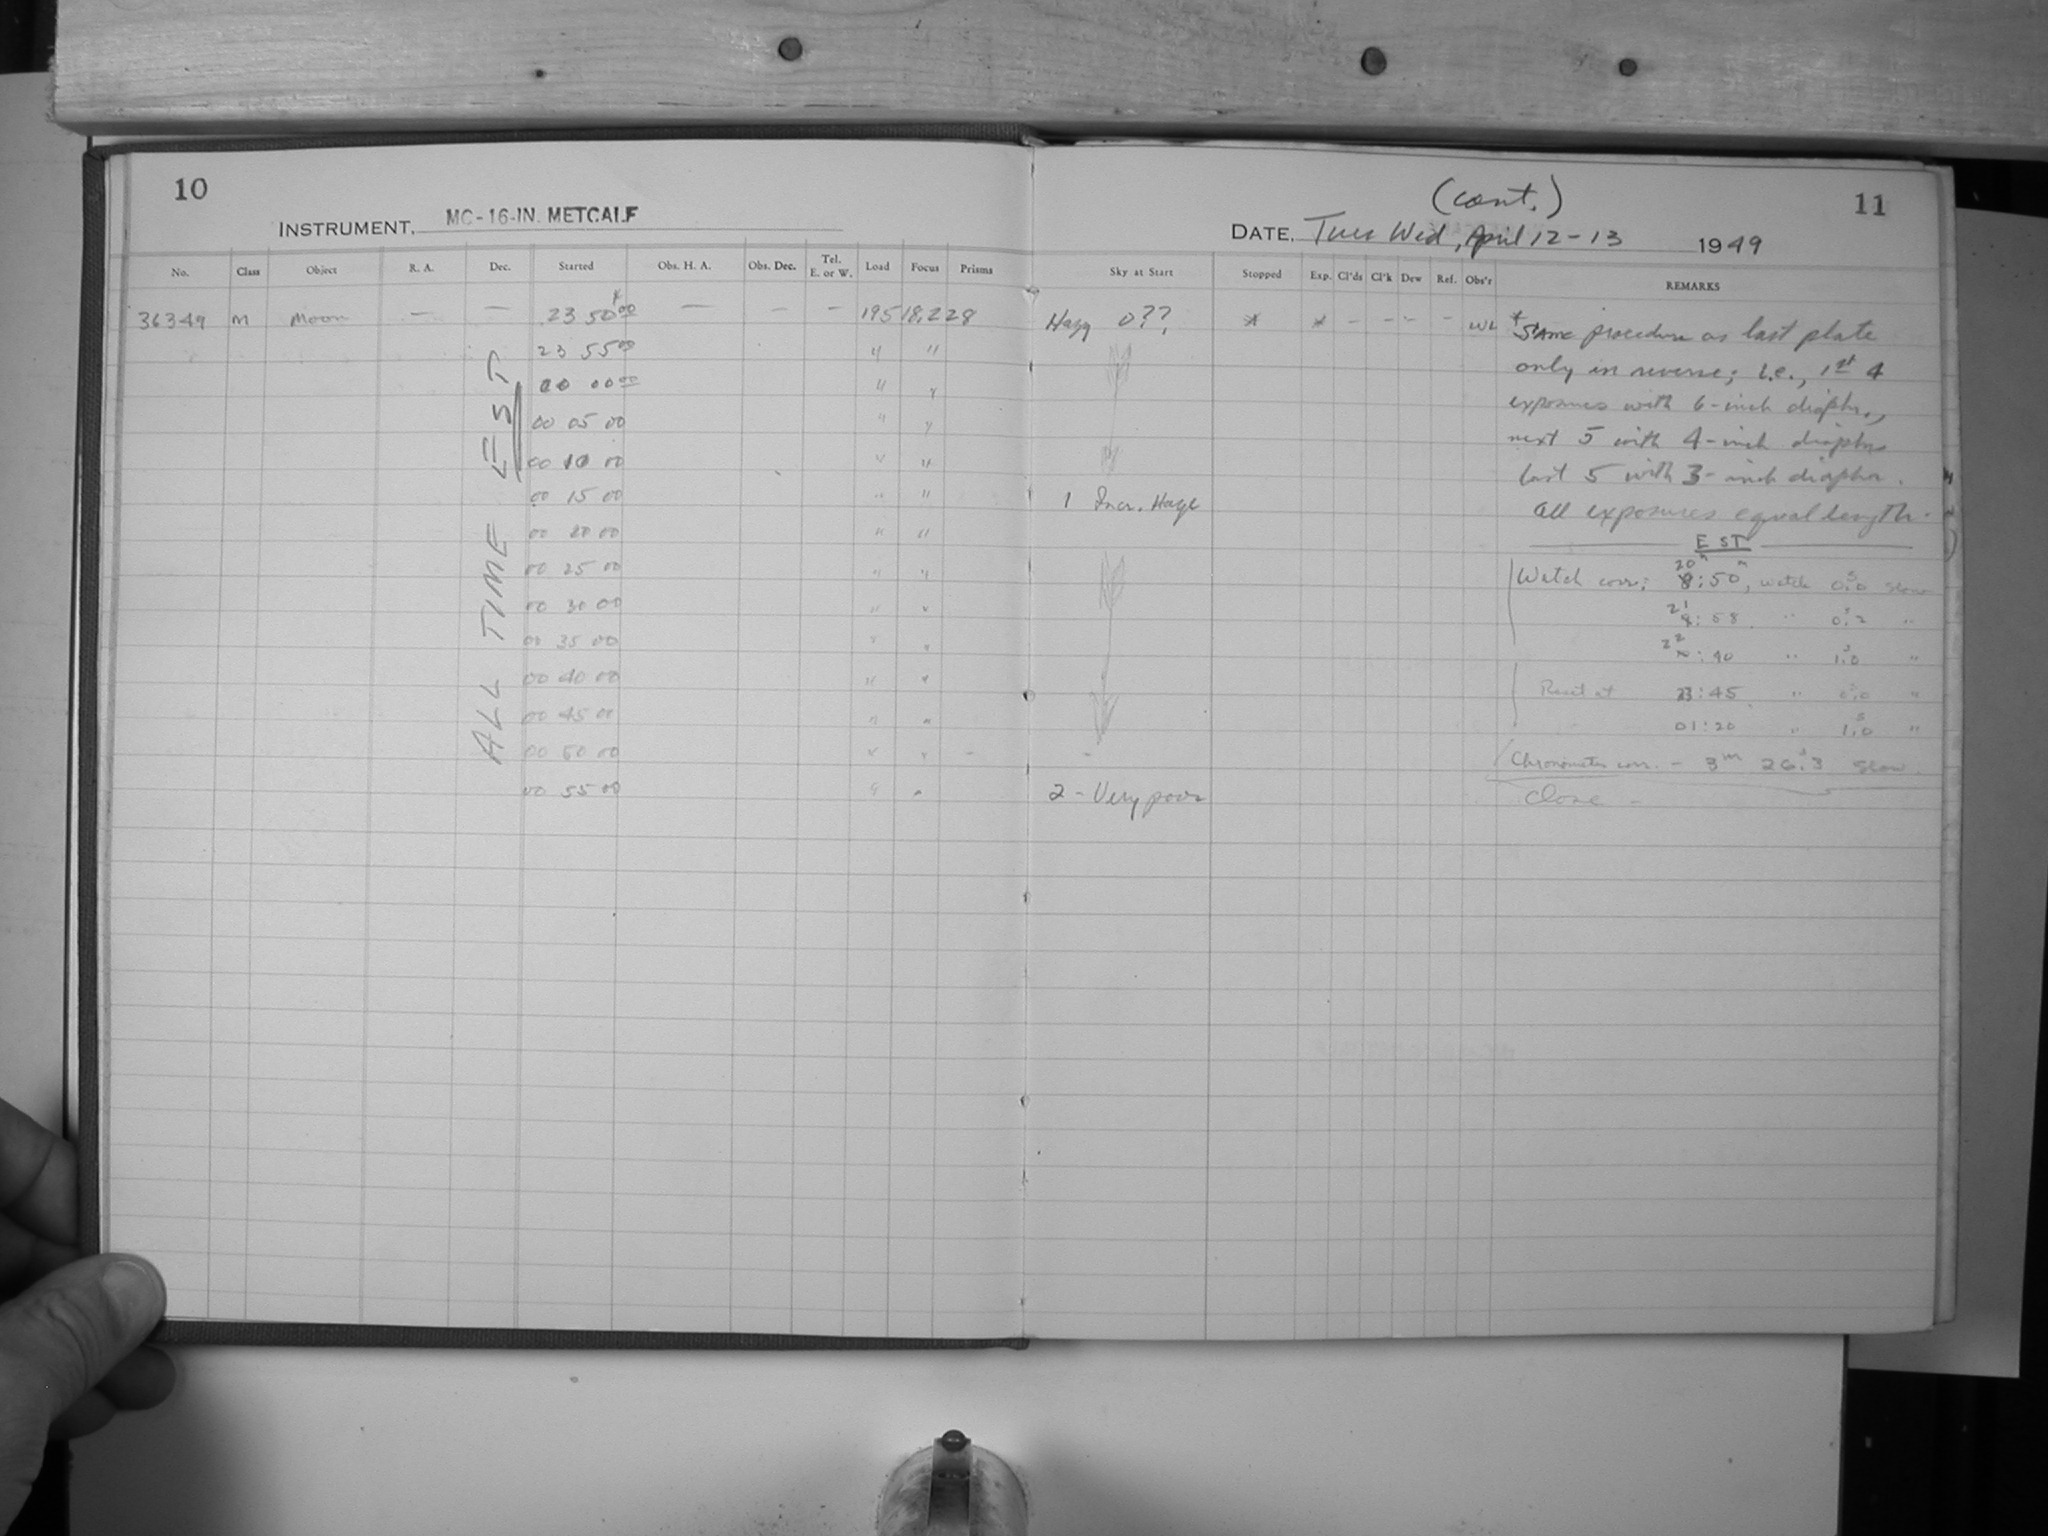 10
INSTRUMENT, MC-16-IN. METCALF
No. Class Object R. A. Dec. Started Obs. H. A. Obs. Dec. Tel. E. or W. Load Focus Prisms
36349 M Moon — — 23 50* 00 — — — 195 18,228
23 55 00 " "
00 00 00 " "
00 05 00 " "
00 10 00 " "
00 15 00 " "
00 20 00 " "
00 25 00 " "
00 30 00 " "
00 35 00 " "
00 40 00 " "
00 45 00 " "
00 50 00 " " -
00 55 00 " "
ALL TIME EST
(cont.)
11
DATE, Tues Wed, April 12-13 1949
Sky at Start Stopped Exp. Cl'ds Cl'k Dew Ref. Obs'r REMARKS
Hazy 0?? * * - - - - WL
1 Incr. Haze
-
2 - Very poor
* Same procedure as last plate
only in reverse; i.e., 1st 4
exposures with 6-inch diaphr.,
next 5 with 4-inch diaphr
last 5 with 3-inch diaphr.
All exposures equal length.
EST
Watch corr: 20h:50m, watch 0s.0 slow
21:58 " 0s.2 "
22:40 " 1s.0 "
Reset at 23:45 " 0s.0 "
01:20 " 1s.0 "
Chronometer corr. - 3m 26s.3 slow
Close -